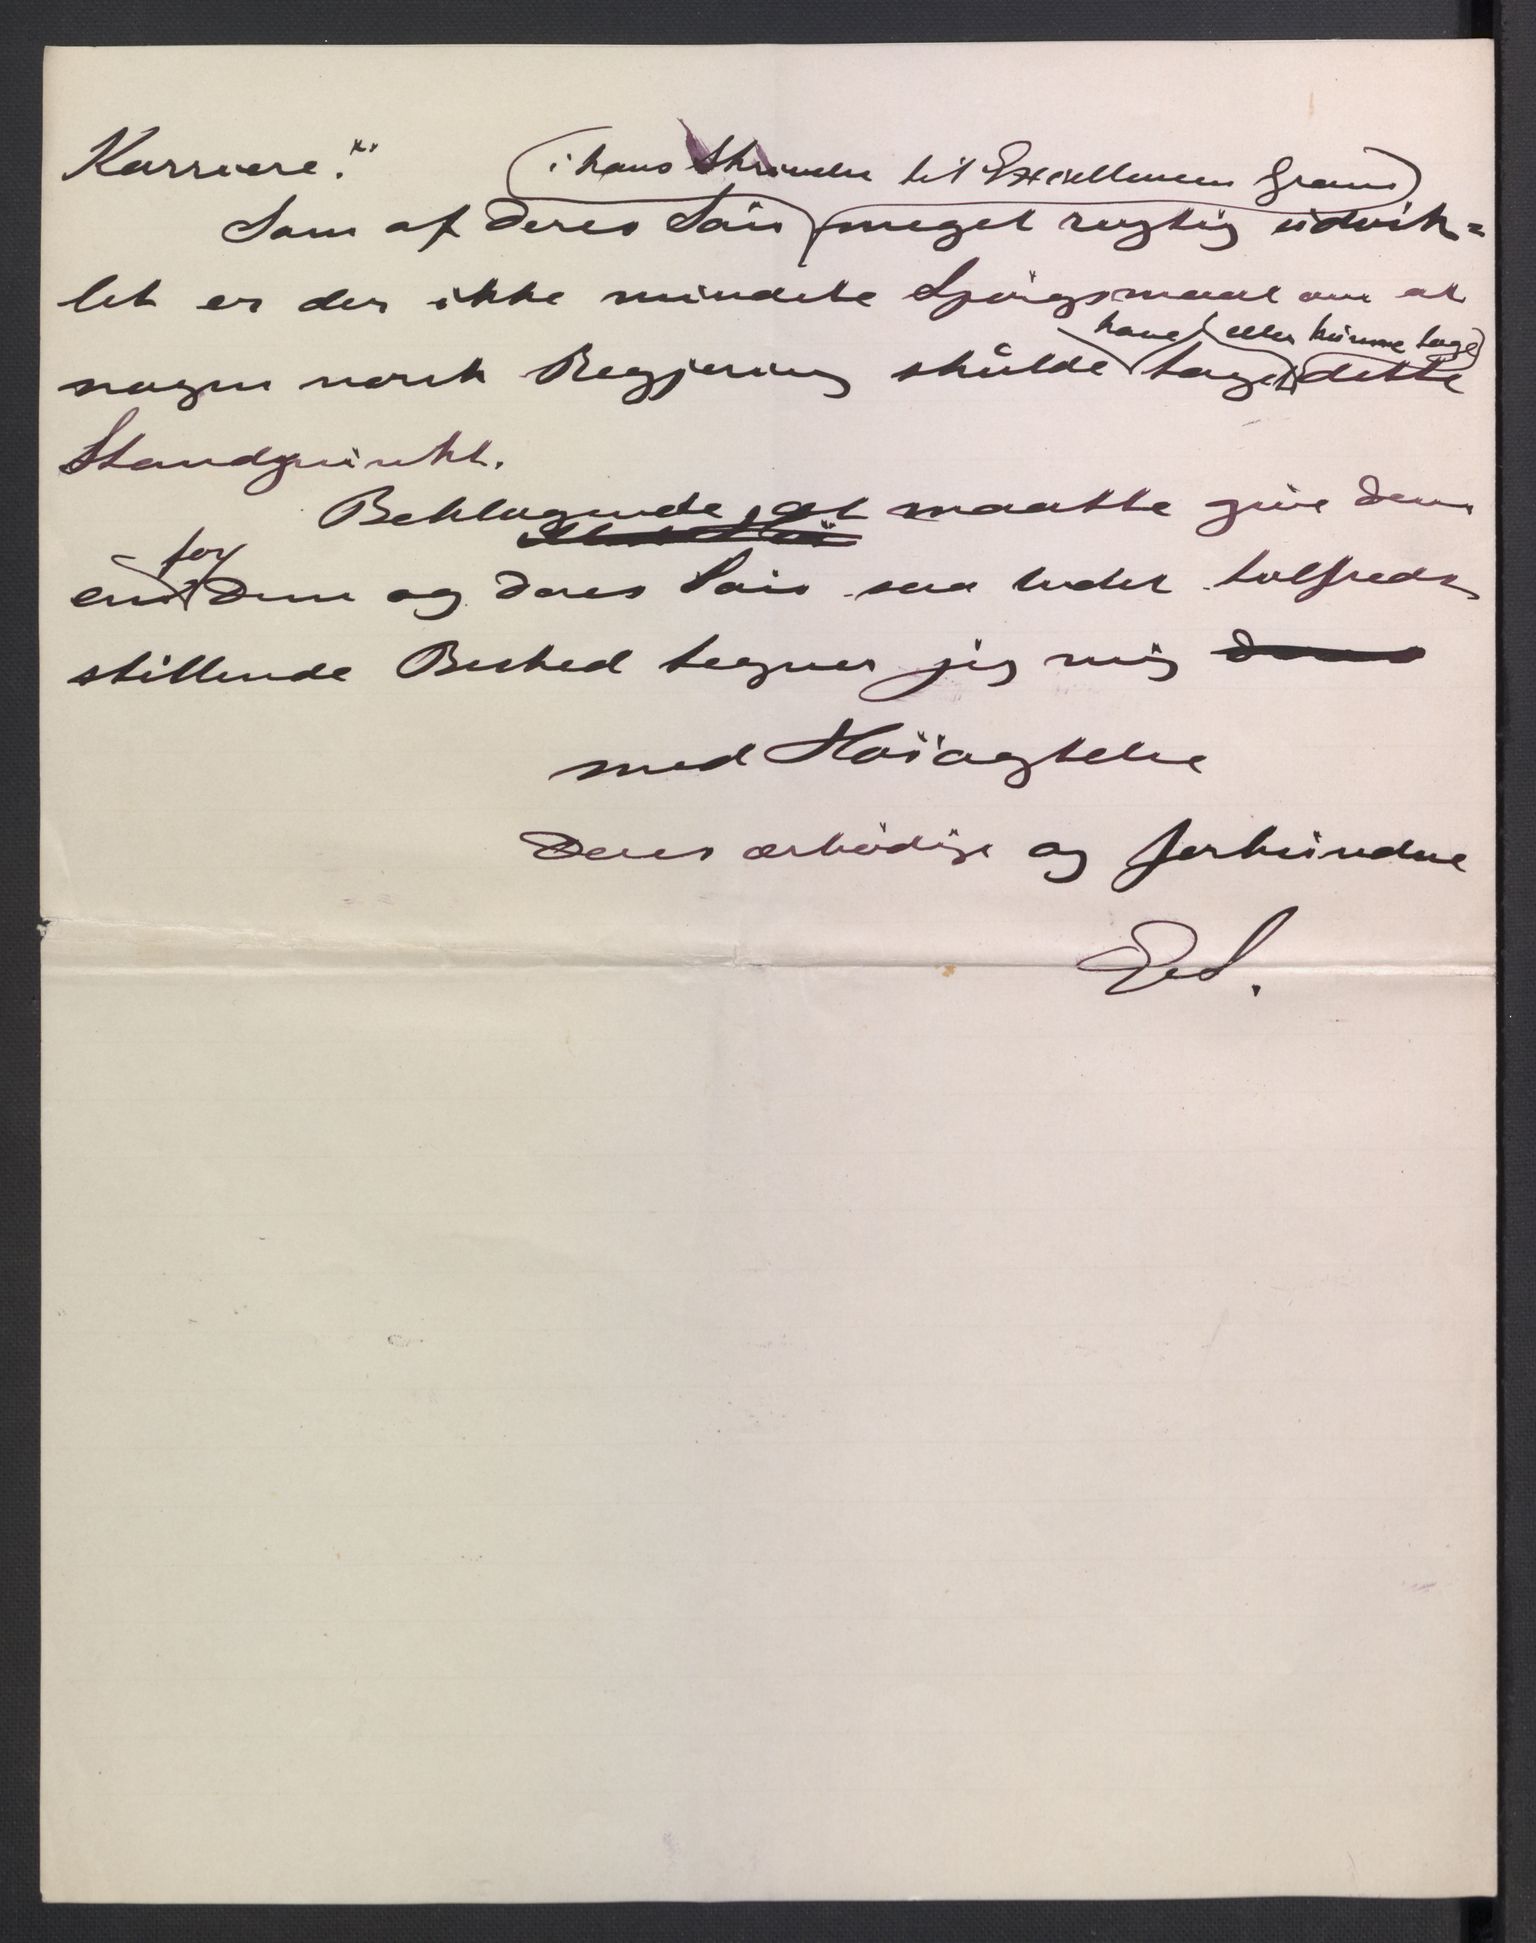 Karriere."
i hans Skrivelse til Excellencen Gram
Som af Deres Søn meget rigtig udvik=
let er der ikke mindste Spörgsmaal om at
have eller kunne tage
nogen norsk Regjering skulde taget dette
Standpunkt.
Beklagende at maatte give Dem
for
en Dem og Deres Søn saa lidet tilfreds
stillende Besked tegner jeg mig
med Høiagtelse
Deres ærbødige og forbundne